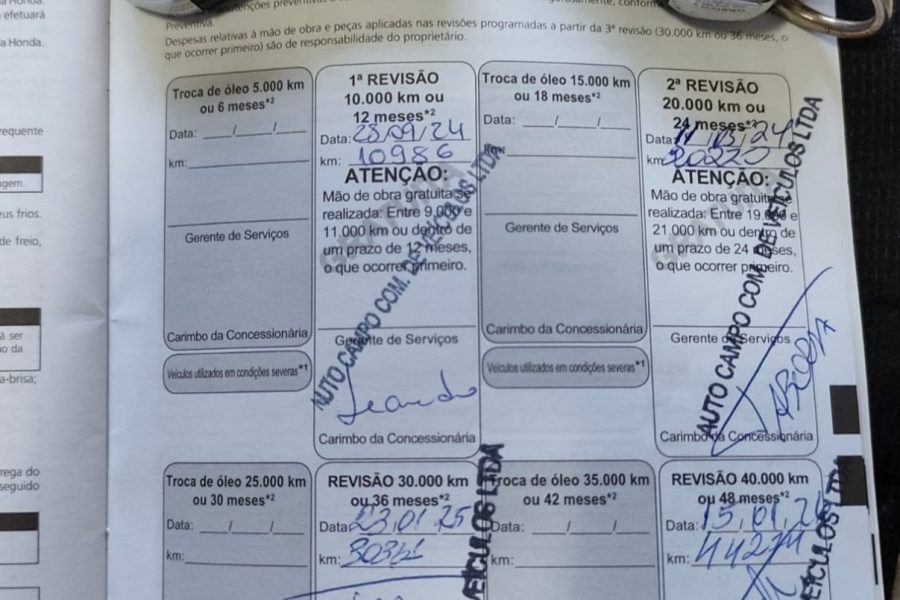 Preventiva.
Despesas relativas à mão de obra e peças aplicadas nas revisões programadas a partir da 3ª revisão (30.000 km ou 36 meses, o
que ocorrer primeiro) são de responsabilidade do proprietário.
efetuará
a Honda.
requente
agem.
us frios.
de freio,
á ser
ão da
a-brisa;
rega do
seguido
Troca de óleo 5.000 km
ou 6 meses*2
Data: ___/___/___
km:
Gerente de Serviços
Carimbo da Concessionária
Veículos utilizados em condições severas*1
1ª REVISÃO
10.000 km ou
12 meses*2
Data: 28/09/24
km: 10986
ATENÇÃO:
Mão de obra gratuita se
realizada: Entre 9.000 e
11.000 km ou dentro de
um prazo de 12 meses,
o que ocorrer primeiro.
GRATUITA
Gerente de Serviços
AUTO CAMPO COM. DE VEÍCULOS LTDA
Leandro
Carimbo da Concessionária
Troca de óleo 15.000 km
ou 18 meses*2
Data: ___/___/___
km:
Gerente de Serviços
Carimbo da Concessionária
Veículos utilizados em condições severas*1
2ª REVISÃO
20.000 km ou
24 meses*2
Data: /24
km:
ATENÇÃO:
Mão de obra gratuita se
realizada: Entre 19.000 e
21.000 km ou dentro de
um prazo de 24 meses,
o que ocorrer primeiro.
GRATUITA
Gerente de Serviços
AUTO CAMPO COM. DE VEÍCULOS LTDA
Carimbo da Concessionária
Troca de óleo 25.000 km
ou 30 meses*2
Data: ___/___/___
km:
REVISÃO 30.000 km
ou 36 meses*2
Data: 23/01/25
km:
VEÍCULOS LTDA
Troca de óleo 35.000 km
ou 42 meses*2
Data: ___/___/___
km:
REVISÃO 40.000 km
ou 48 meses*2
Data:
km: 44274
VEÍCULOS LTDA